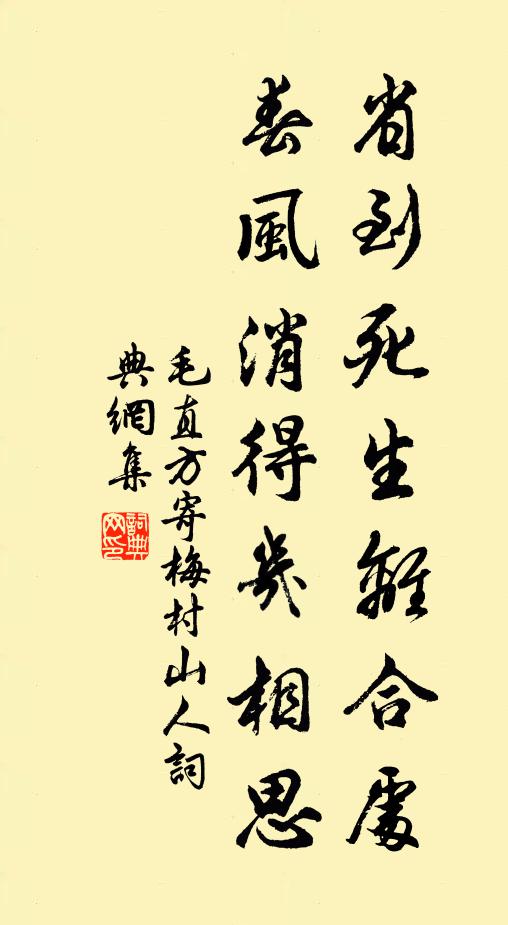 省到死生離合處
春風消得幾相思
毛直方寄梅村山人詞
典網集
詞典
網印